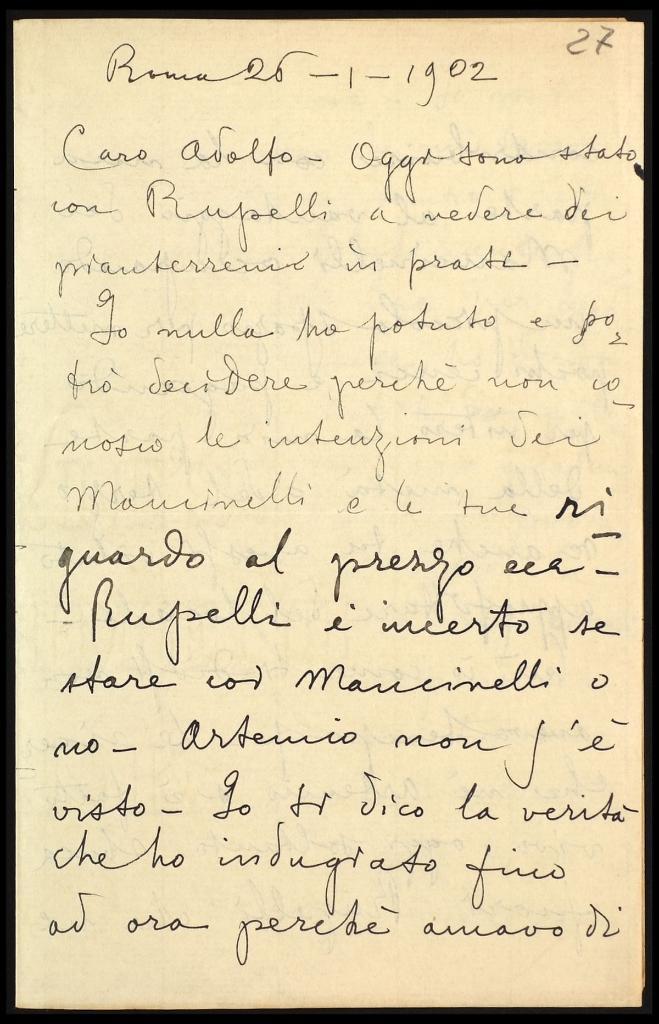 27
Roma 26 - 1 - 1902
Caro Adolfo - Oggi sono stato
con Rupelli a vedere dei
pianterreni in prati -
Io nulla ho potuto e po=
trò decidere perchè non co=
nosco le intenzioni dei
Mancinelli e le tue ri=
guardo al prezzo ecc -
- Rupelli è incerto se
stare coi Mancinelli o
no - Artemio non s'è
visto - Io ti dico la verità
che ho indugiato fino
ad ora perchè amavo di